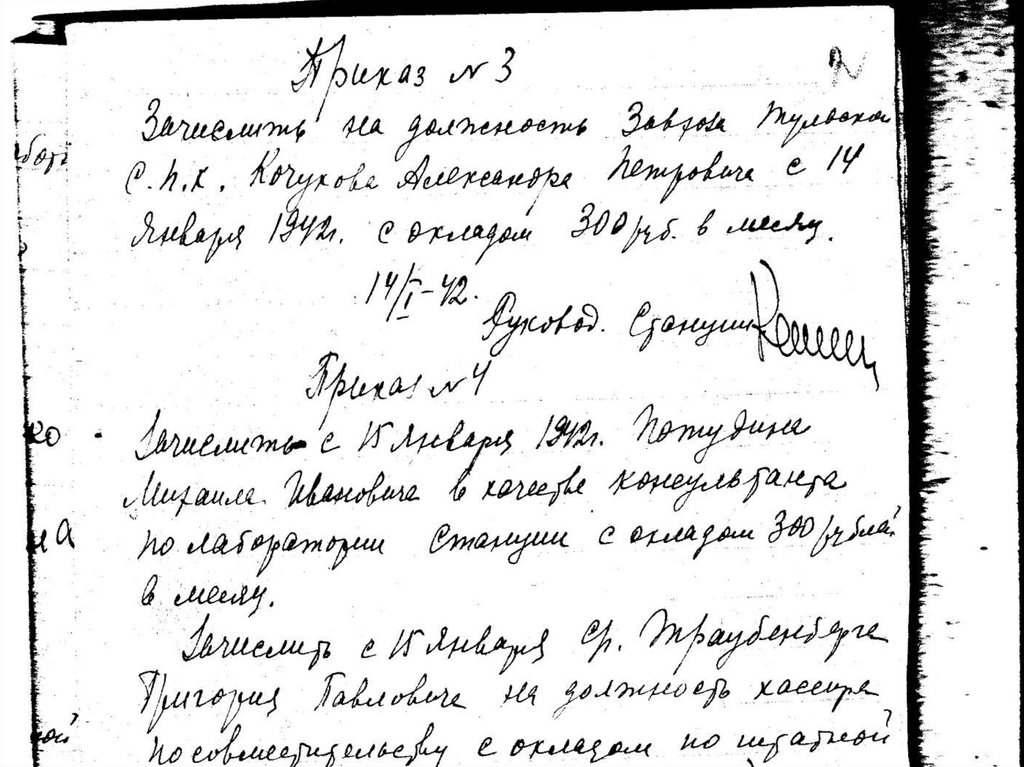 Приказ № 3
2
Зачислить на должность Завхоза Тульской
С.п.к. Кочукова Александра Петровича с 14
Января 1942г. с окладом 300 руб. в месяц.
14/I-42.
Руковод. Станции
Приказ № 4
Зачислить с 15 Января 1942г. Потудина
Михаила Ивановича в качестве консультанта
по лаборатории Станции с окладом 300 рублей
в месяц.
Зачислить с 15 Января Гр. Траубенберга
Григория Павловича на должность кассира
по совместительству с окладом по штатной